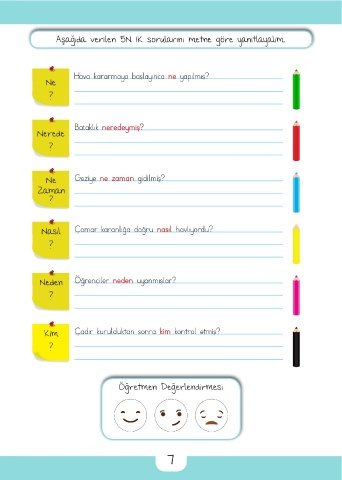 Aşağıda verilen 5N 1K sorularını metne göre yanıtlayalım.
Ne
?
Hava kararmaya başlayınca ne yapılmış?
Nerede
?
Bataklık neredeymiş?
Ne
Zaman
?
Geziye ne zaman gidilmiş?
Nasıl
?
Çomar karanlığa doğru nasıl havlıyordu?
Neden
?
Öğrenciler neden uyanmışlar?
Kim
?
Çadır kurulduktan sonra kim kontrol etmiş?
Öğretmen Değerlendirmesi
7